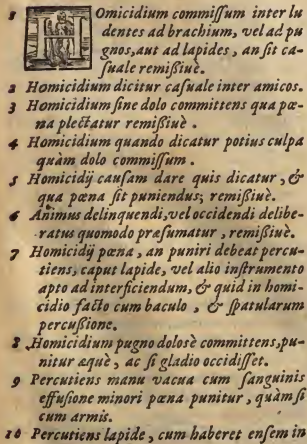 1 HOmicidium commissum inter lu
dentes ad brachium, vel ad pu
gnos, aut ad lapides, an sit ca-
suale remissiuè.
2 Homicidium dicitur casuale inter amicos.
3 Homicidium sine dolo committens qua pœ-
na plectatur remissiuè.
4 Homicidium quando dicatur potius culpa
quàm dolo commissum.
5 Homicidij causam dare quis dicatur, &
qua pœna sit puniendus; remissiuè.
6 Animus delinquendi, vel occidendi delibe-
ratus quomodo præsumatur, remissiuè.
7 Homicidij pœna, an puniri debeat percu-
tiens, caput lapide, vel alio instrumento
apto ad interficiendum, & quid in homi-
cidio facto cum baculo, & spatularum
percussione.
8 Homicidium pugno dolosè committens, pu-
nitur æquè, ac si gladio occidisset.
9 Percutiens manu vacua cum sanguinis
effusione minori pœna punitur, quàm si
cum armis.
10 Percutiens lapide, cum haberet ensem in